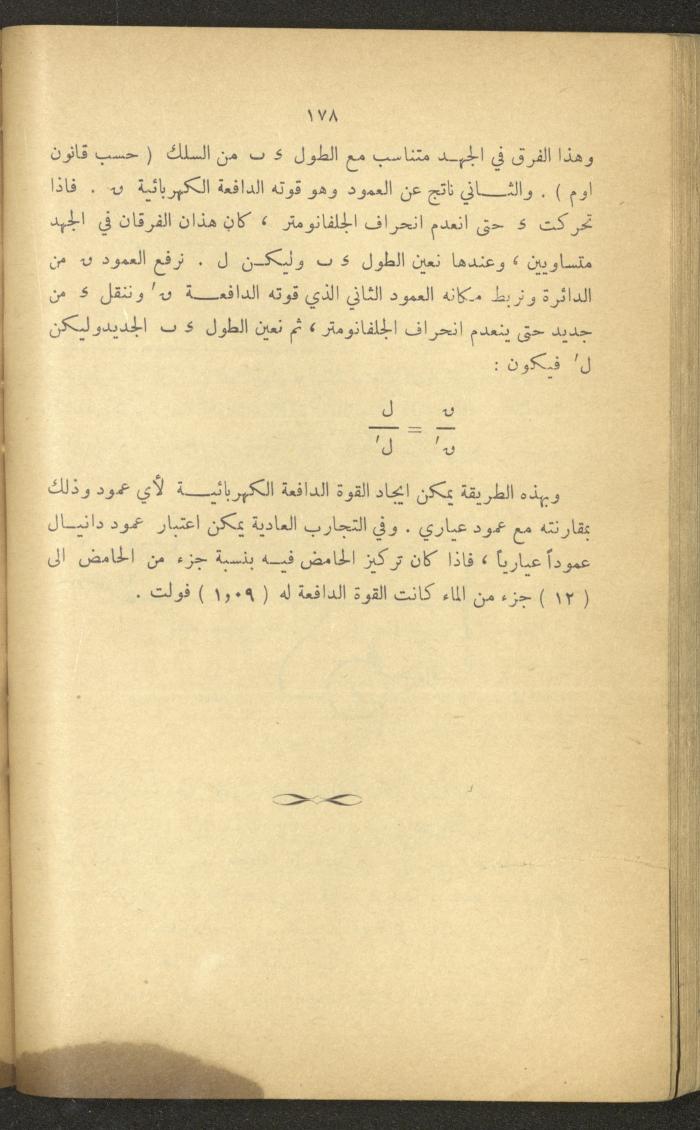 ١٧٨
وهذا الفرق في الجهد متناسب مع الطول ء ب من السلك ( حسب قانون
اوم ) . والثاني ناتج عن العمود وهو قوته الدافعة الكهربائية ق . فاذا
تحركت ء حتى انعدم انحراف الجلفانومتر ، كان هذان الفرقان في الجهد
متساويين ، وعندها نعين الطول ء ب وليكن ل . نرفع العمود ق من
الدائرة ونربط مكانه العمود الثاني الذي قوته الدافعة ق′ وننقل ء من
جديد حتى ينعدم انحراف الجلفانومتر ، ثم نعين الطول ء ب الجديدوليكن
ل′ فيكون :
ق / ق′ = ل / ل′
وبهذه الطريقة يمكن ايجاد القوة الدافعة الكهربائية لأي عمود وذلك
بمقارنته مع عمود عياري . وفي التجارب العادية يمكن اعتبار عمود دانيال
عموداً عيارياً ، فاذا كان تركيز الحامض فيه بنسبة جزء من الحامض الى
( ١٢ ) جزء من الماء كانت القوة الدافعة له ( ١,٠٩ ) فولت .